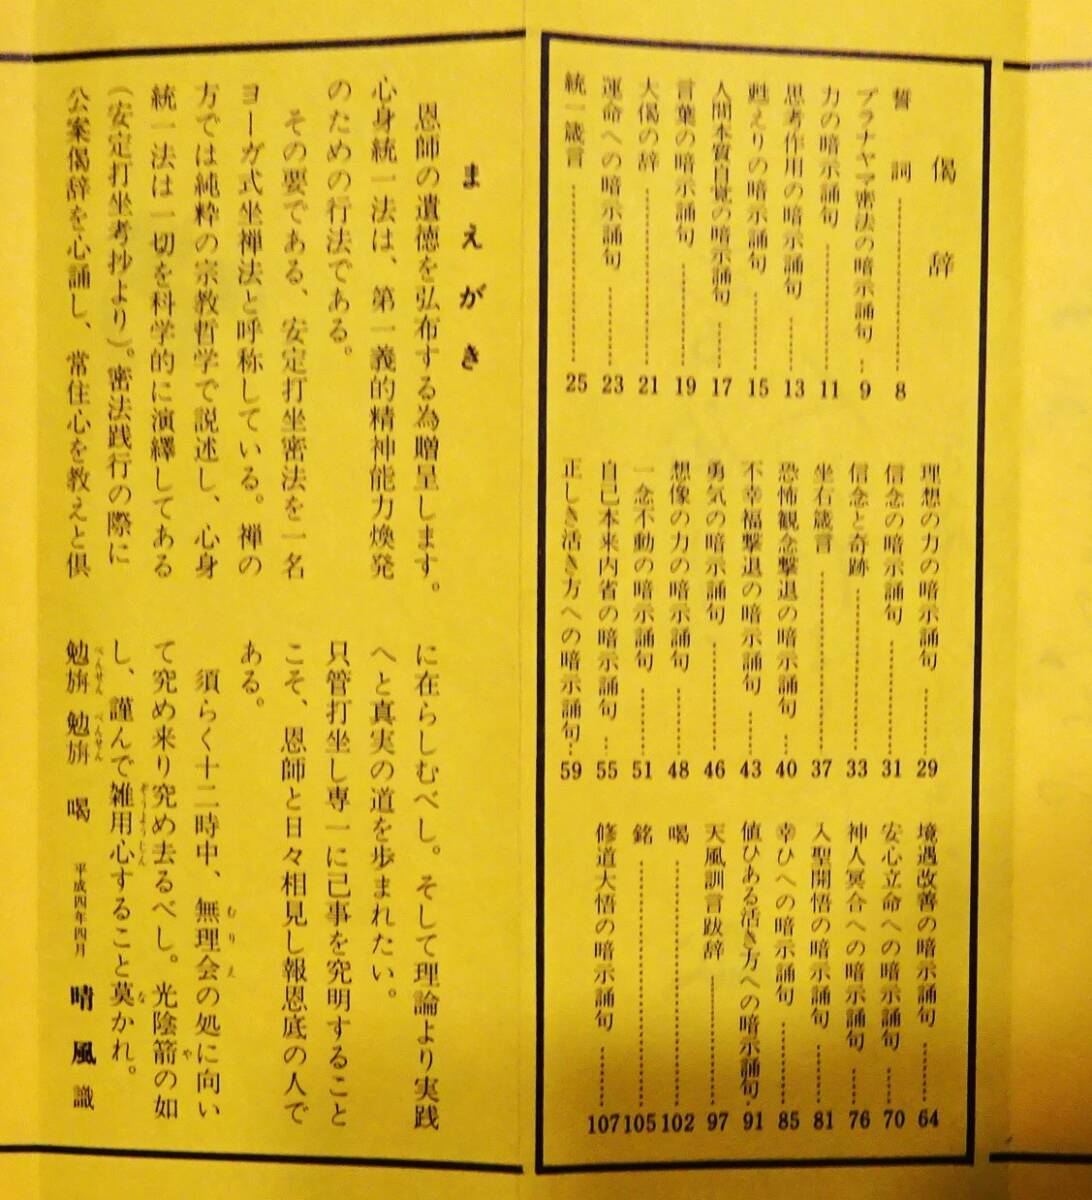 偈辞
誓詞 8
プラナヤマ密法の暗示誦句 9
力の暗示誦句 11
思考作用の暗示誦句 13
甦えりの暗示誦句 15
人間本質自覚の暗示誦句 17
言葉の暗示誦句 19
大偈の辞 21
運命への暗示誦句 23
統一箴言 25
理想の力の暗示誦句 29
信念の暗示誦句 31
信念と奇跡 33
坐右箴言 37
恐怖観念撃退の暗示誦句 40
不幸福撃退の暗示誦句 43
勇気の暗示誦句 46
想像の力の暗示誦句 48
一念不動の暗示誦句 51
自己本来内省の暗示誦句 55
正しき活き方への暗示誦句 59
境遇改善の暗示誦句 64
安心立命への暗示誦句 70
神人冥合への暗示誦句 76
入聖開悟の暗示誦句 81
幸ひへの暗示誦句 85
値ひある活き方への暗示誦句 91
天風訓言跋辞 97
喝 102
銘 105
修道大悟の暗示誦句 107
まえがき
恩師の遺徳を弘布する為贈呈します。
心身統一法は、第一義的精神能力煥発
のための行法である。
その要である、安定打坐密法を一名
ヨーガ式坐禅法と呼称している。禅の
方では純粋の宗教哲学で説述し、心身
統一法は一切を科学的に演繹してある
(安定打坐考抄より)。密法践行の際に
公案偈辞を心誦し、常住心を教えと倶
に在らしむべし。そして理論より実践
へと真実の道を歩まれたい。
只管打坐し専一に己事を究明すること
こそ、恩師と日々相見し報恩底の人で
ある。
須らく十二時中、無理会の処に向い
て究め来り究め去るべし。光陰箭の如
し、謹んで雑用心すること莫かれ。
勉旃勉旃 喝 平成四年四月 晴風識